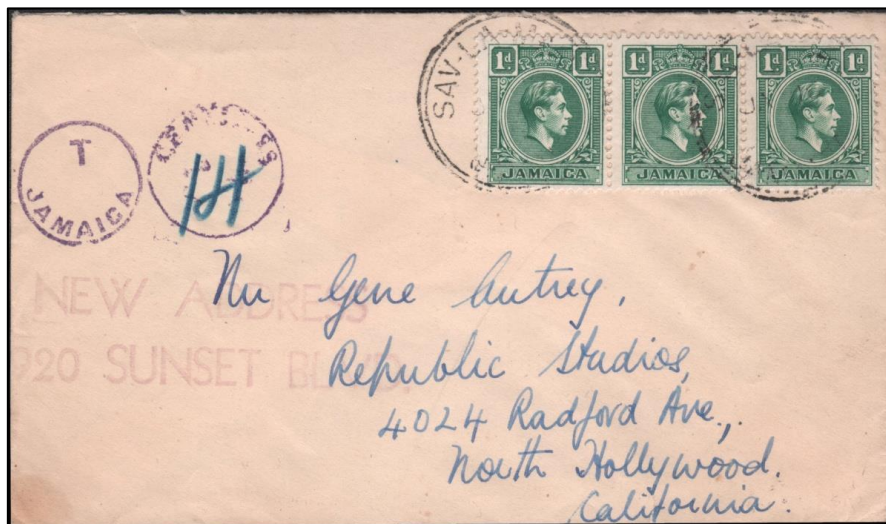 1d 1d 1d 1d 1d 1d
SAV-LA-MAR
JAMAICA JAMAICA JAMAICA
T
JAMAICA
CENTIMES
14
NEW ADDRESS
920 SUNSET BLVD.
Mr Gene Autrey,
Republic Studios,
4024 Radford Ave.,
North Hollywood.
California.